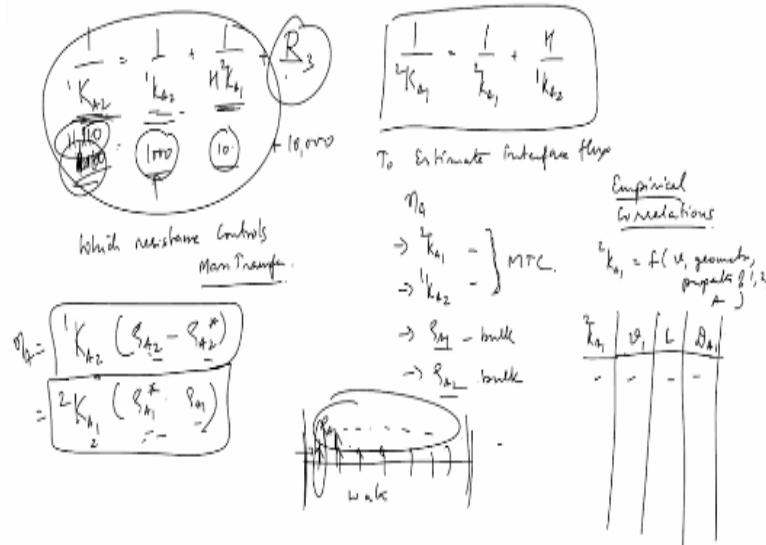 1/¹K_A2 = 1/¹k_A2 + 1/H²k_A1 + R_3
11,010 = 1000 10 + 10,000
Which resistance Controls
Mass Transfer.
n_A = ¹K_A2 (ρ_A2 - ρ_A2*)
= ²K_A1 (ρ_A1* - ρ_A1)
2
1/²K_A1 = 1/²k_A1 + H/¹k_A2
To Estimate Interface flux
n_A
→ ²k_A1 -
→ ¹k_A2 -
} MTC.
→ ρ_A1 - bulk
→ ρ_A2 bulk
Empirical
Correlations
²k_A1 = f(v, geometry,
property of 1, 2
A)
²k_A1 | v_1 | L | D_A1
- | - | - | -